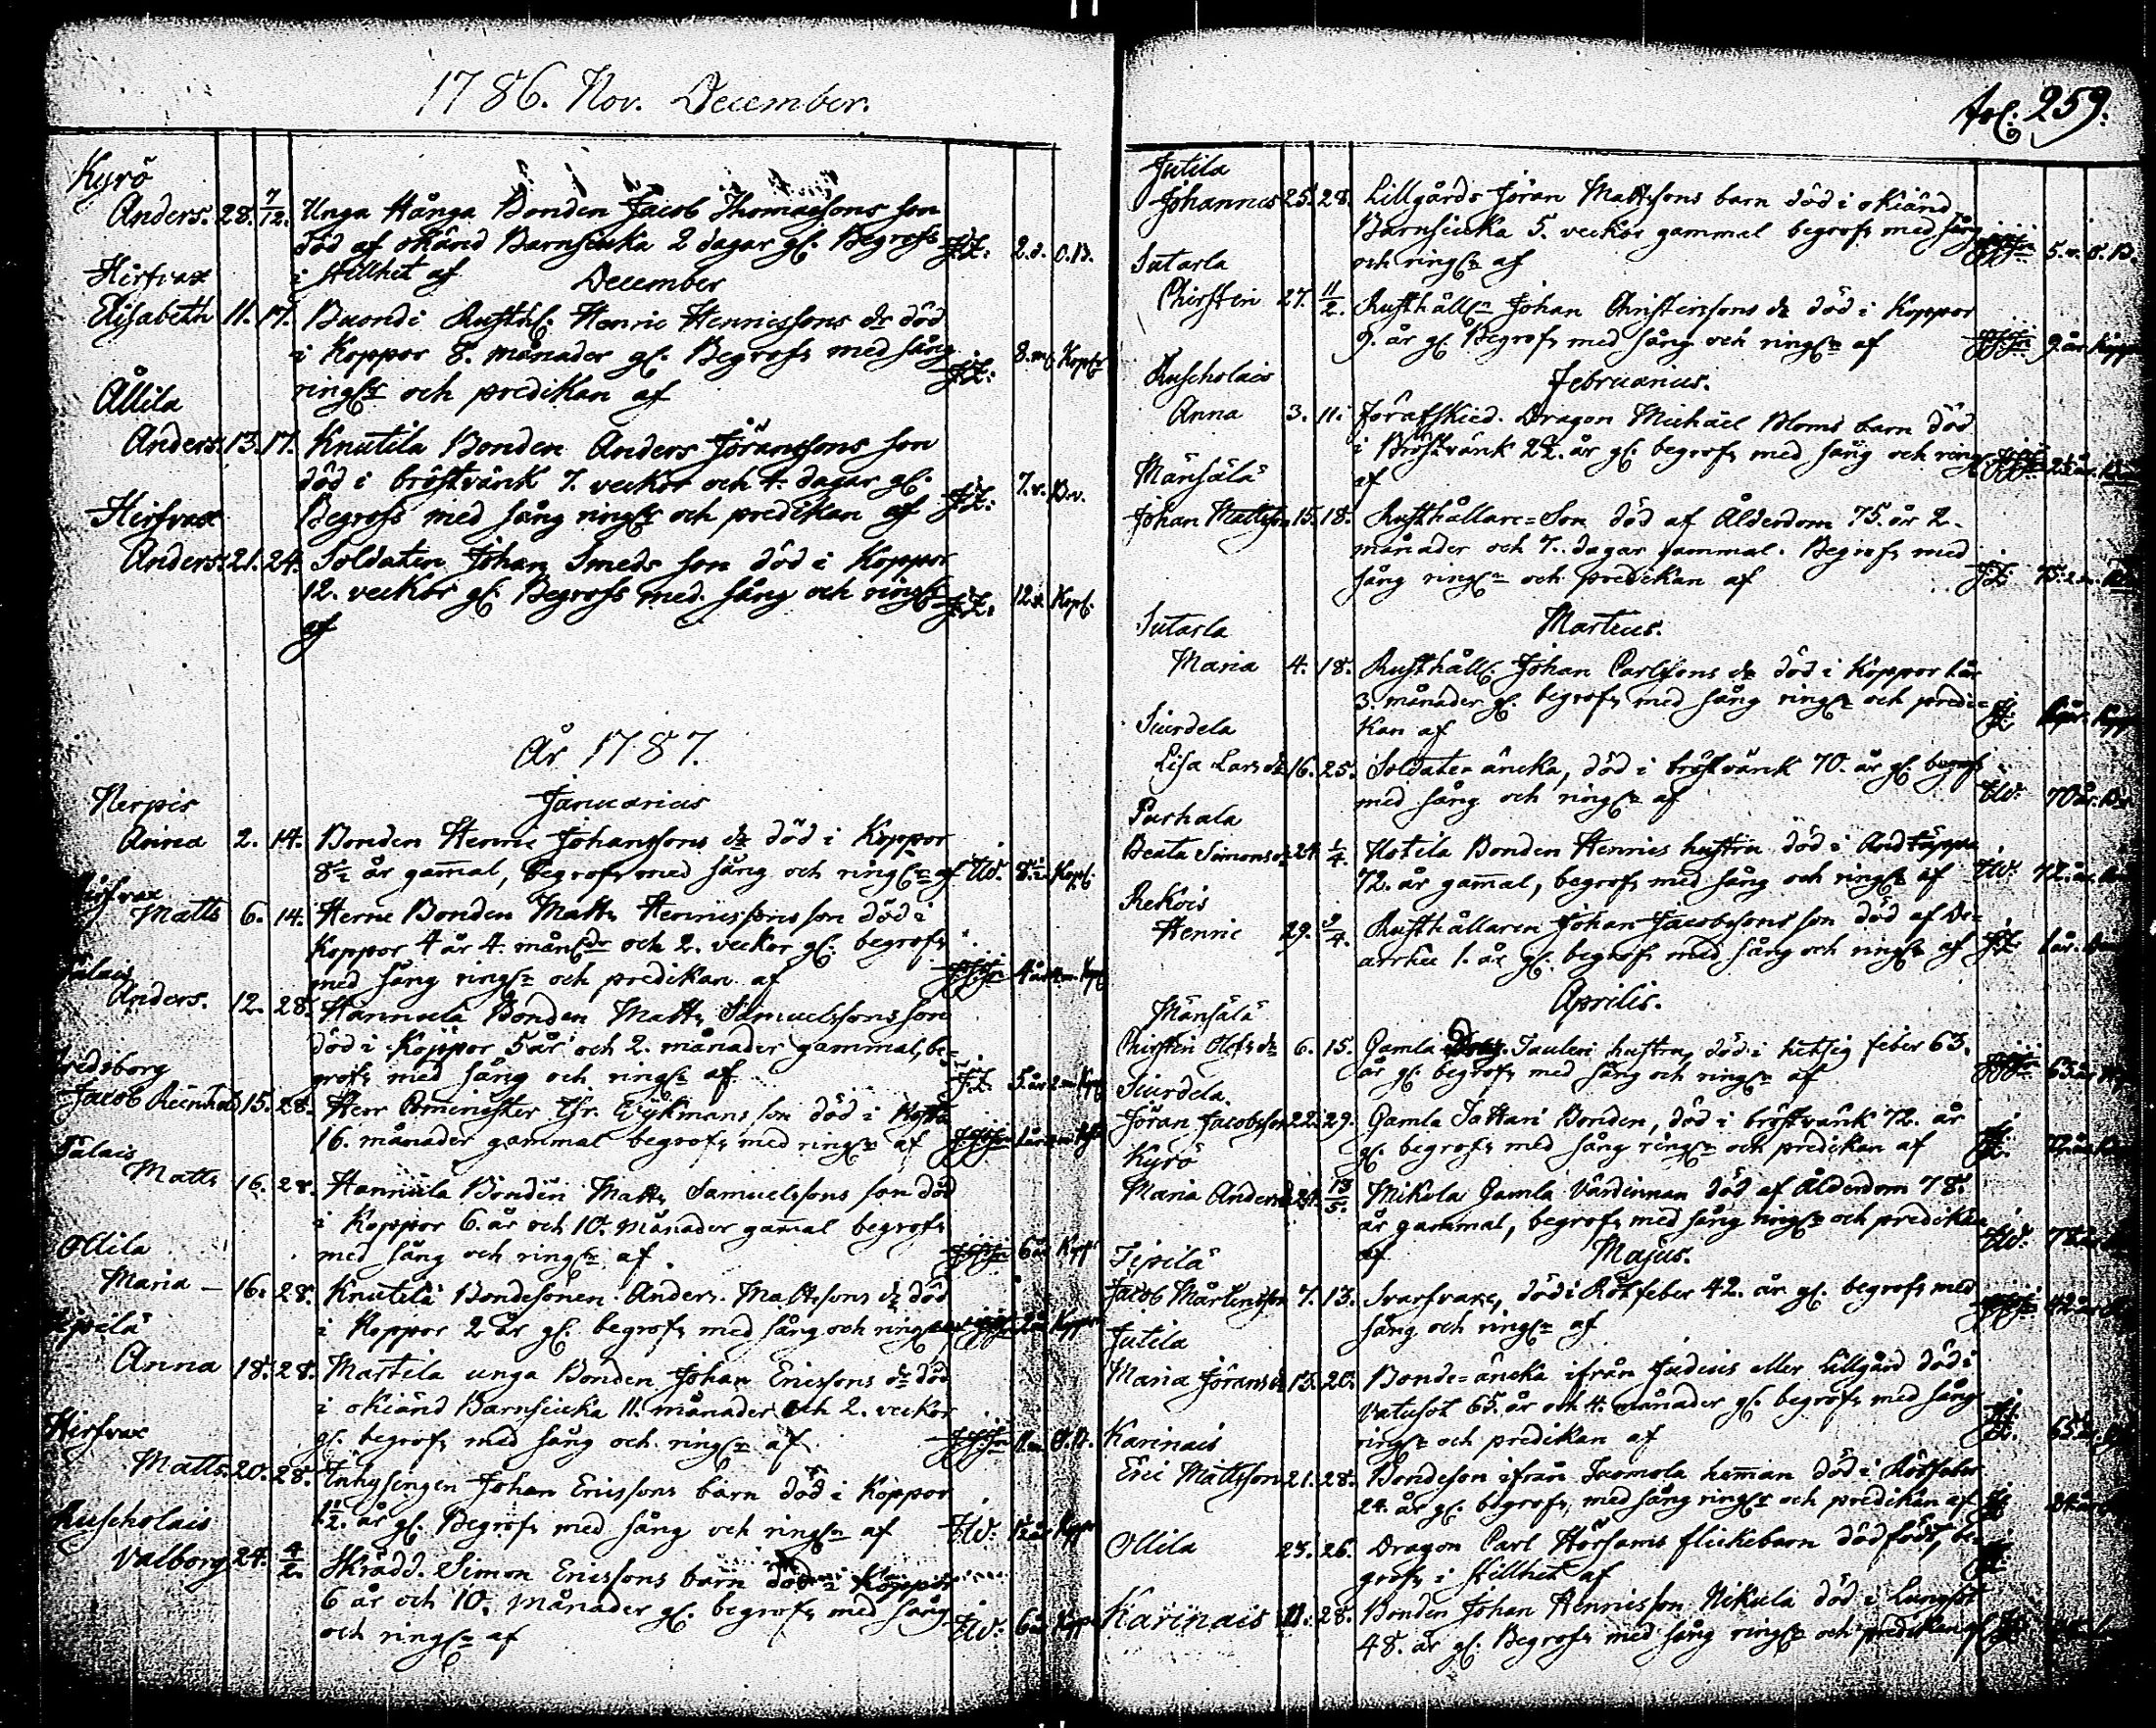 1786. Nov. December.
Kyrö
Anders. 28. 7/12. Unga Hånga Bonden Jacob Thomassons son
död af okänd Barnsiuka 2 dagar gl. Begrofs J.Z. 2.d. O.B.
i stillhet af
December
Hirfvax
Elisabeth 11. 17. Rusth. Henric Henricssons dr död
i Koppor 8. månader gl. Begrofs med sång J.Z. 8.m. Kopp
ringn och predikan af
Ållila
Anders. 13. 17. Knutila Bonden Anders Jöranssons son
död i bröstvärk 7. veckor och 4. dagar gl. J.Z. 7.v. Brv.
Begrofs med sång ringn och predikan af
Hirfvax
Anders. 21. 24. Soldaten Johan Smeds son död i Koppor
12. veckor gl. Begrofs med sång och ringn J.Z. 12.v. Kopl.
af
År 1787.
Januarius
Nerpis
Anna 2. 14. Bonden Henric Johanssons dr död i Koppor
8½ år gamal, begrofs med sång och ringn af TW. 8½ Kopl.
Hirfvax
Matts 6. 14. Herne Bonden Matts Henricssons son död i
Koppor 4 år 4. måndr och 2. veckor gl. begrofs
med sång ringn och predikan af 4 år
Talais
Anders. 12. 28. Hannula Bonden Matts Samuelssons son
död i Koppor 5 år och 2. månader gammal, be-
grofs med sång och ringn af J.Z. 5. år 2 m
Jacob Reinhold 15. 28. Herr Cominister Chr. Eykmans son död i
16. månader gammal begrofs med ringn af
Talais
Matts 16. 28. Hannula Bonden Matts Samuelssons son död
i Koppor 6. år och 10. månader gamal begrofs
med sång och ringn af. 6 år Kopp
Ollila
Maria – 16. 28. Knutila Bondesonen Anders Mattssons dr död
i Koppor 2 år gl. begrofs med sång och ringn 2 år Koppor
Tipilä
Anna 18. 28. Martila unga Bonden Johan Ericssons dr död
i okiänd Barnsiucka 11. månader och 2. veckor
gl. begrofs med sång och ringn af 11.m. O.B.
Hirfvax
Matts. 20. 28. Inhysingen Johan Ericssons barn död i Koppor
1½. år gl. Begrofs med sång och ringn af TW. 1½ år Kopp
Ruskolais
Valborg 24. 4/2. Skrädd. Simon Ericssons barn död i Koppor
6 år och 10. månader gl. begrofs med sång TW. 6 år Kopp
och ringn af
Fol: 259.
Jutila
Johannes 25. 28. Lillgårds Jöran Mattssons barn död i okiänd
Barnsiuka 5. veckor gammal begrofs med sång 5.v. O.B.
och ringn af
Sutarla
Chirstin 27. 11/2. Rusthålln Johan Christerssons dr död i Koppor
9. år gl. Begrofs med sång och ringn af 9. år Koppor
Februarius.
Ruscholais
Anna 3. 11. Förafskied. Dragon Michäel Bloms barn död
i Bröstvärk 2½. år gl. begrofs med sång och ringn
af
Mänsälä
Johan Mattsson 15. 18. Rusthållare-Son död af Ålderdom 75. år 2.
månader och 7. dagar gammal. Begrofs med
sång ringn och predikan af J.Z. 75. 2 m.
Martius.
Sutarla
Maria 4. 18. Rusthåll. Johan Carlssons dr död i Koppor 1 år
3. månader gl. begrofs med sång ringn och predi-
kan af
Siurdela
Lisa Lars dr 16. 25. Soldate äncka, död i bröstvärk 70. år gl. begrofs
med sång och ringn af TW. 70 år. Br
Parhala
Beata Simons dr 24. 1/4. Uotila Bonden Henrics hustru död i Andtäppa
72. år gamal, begrofs med sång och ringn af TW. 72. år
Rekois
Henric 29. 9/4. Rusthållaren Johan Jacobssons son död af Di-
arrhee 1. år gl. begrofs med sång och ringn af J.Z. 1 år.
Aprilis.
Mänsälä
Chirstin Olofs dr 6. 15. Gamla Drag. Sauleri hustru, död i hetsig feber 63.
år gl. begrofs med sång och ringn af 63 år
Siurdela.
Jöran Jacobsson 22. 29. Gamla Sattari Bonden, död i bröstvärk 72. år
gl. begrofs med sång ringn och predikan af J.Z. 72 år
Kyrö
Maria Anders dr 24. 13/5. Mikola Gamla Värdinnan död af Ålderdom 78.
år gammal, begrofs med sång ringn och predikan TW. 78 år
af
Majus.
Tipilä
Jacob Mårtensson 7. 13. Svarfvare, död i Rötfeber 42. år gl. begrofs med 42 år
sång och ringn af
Jutila
Maria Jörans dr 13. 20. Bonde-äncka ifrån Judius eller Lillgård död i
Vatusot 65. år och 4. månader gl. begrofs med sång
ringn och predikan af 65 år
Karinais
Eric Mattsson 21. 28. Bondeson ifrån Juomola heman död i Rötfeber
24. år gl. begrofs med sång ringn och predikan af 24 år
Ollila 23. 26. Dragon Carl Hörsams flickebarn dödfödt, be-
grofs i stillhet af
Karinais 21. 28. Bonden Johan Henricsson Nikula död i Lungsot
48. år gl. Begrofs med sång ringn och predikan af